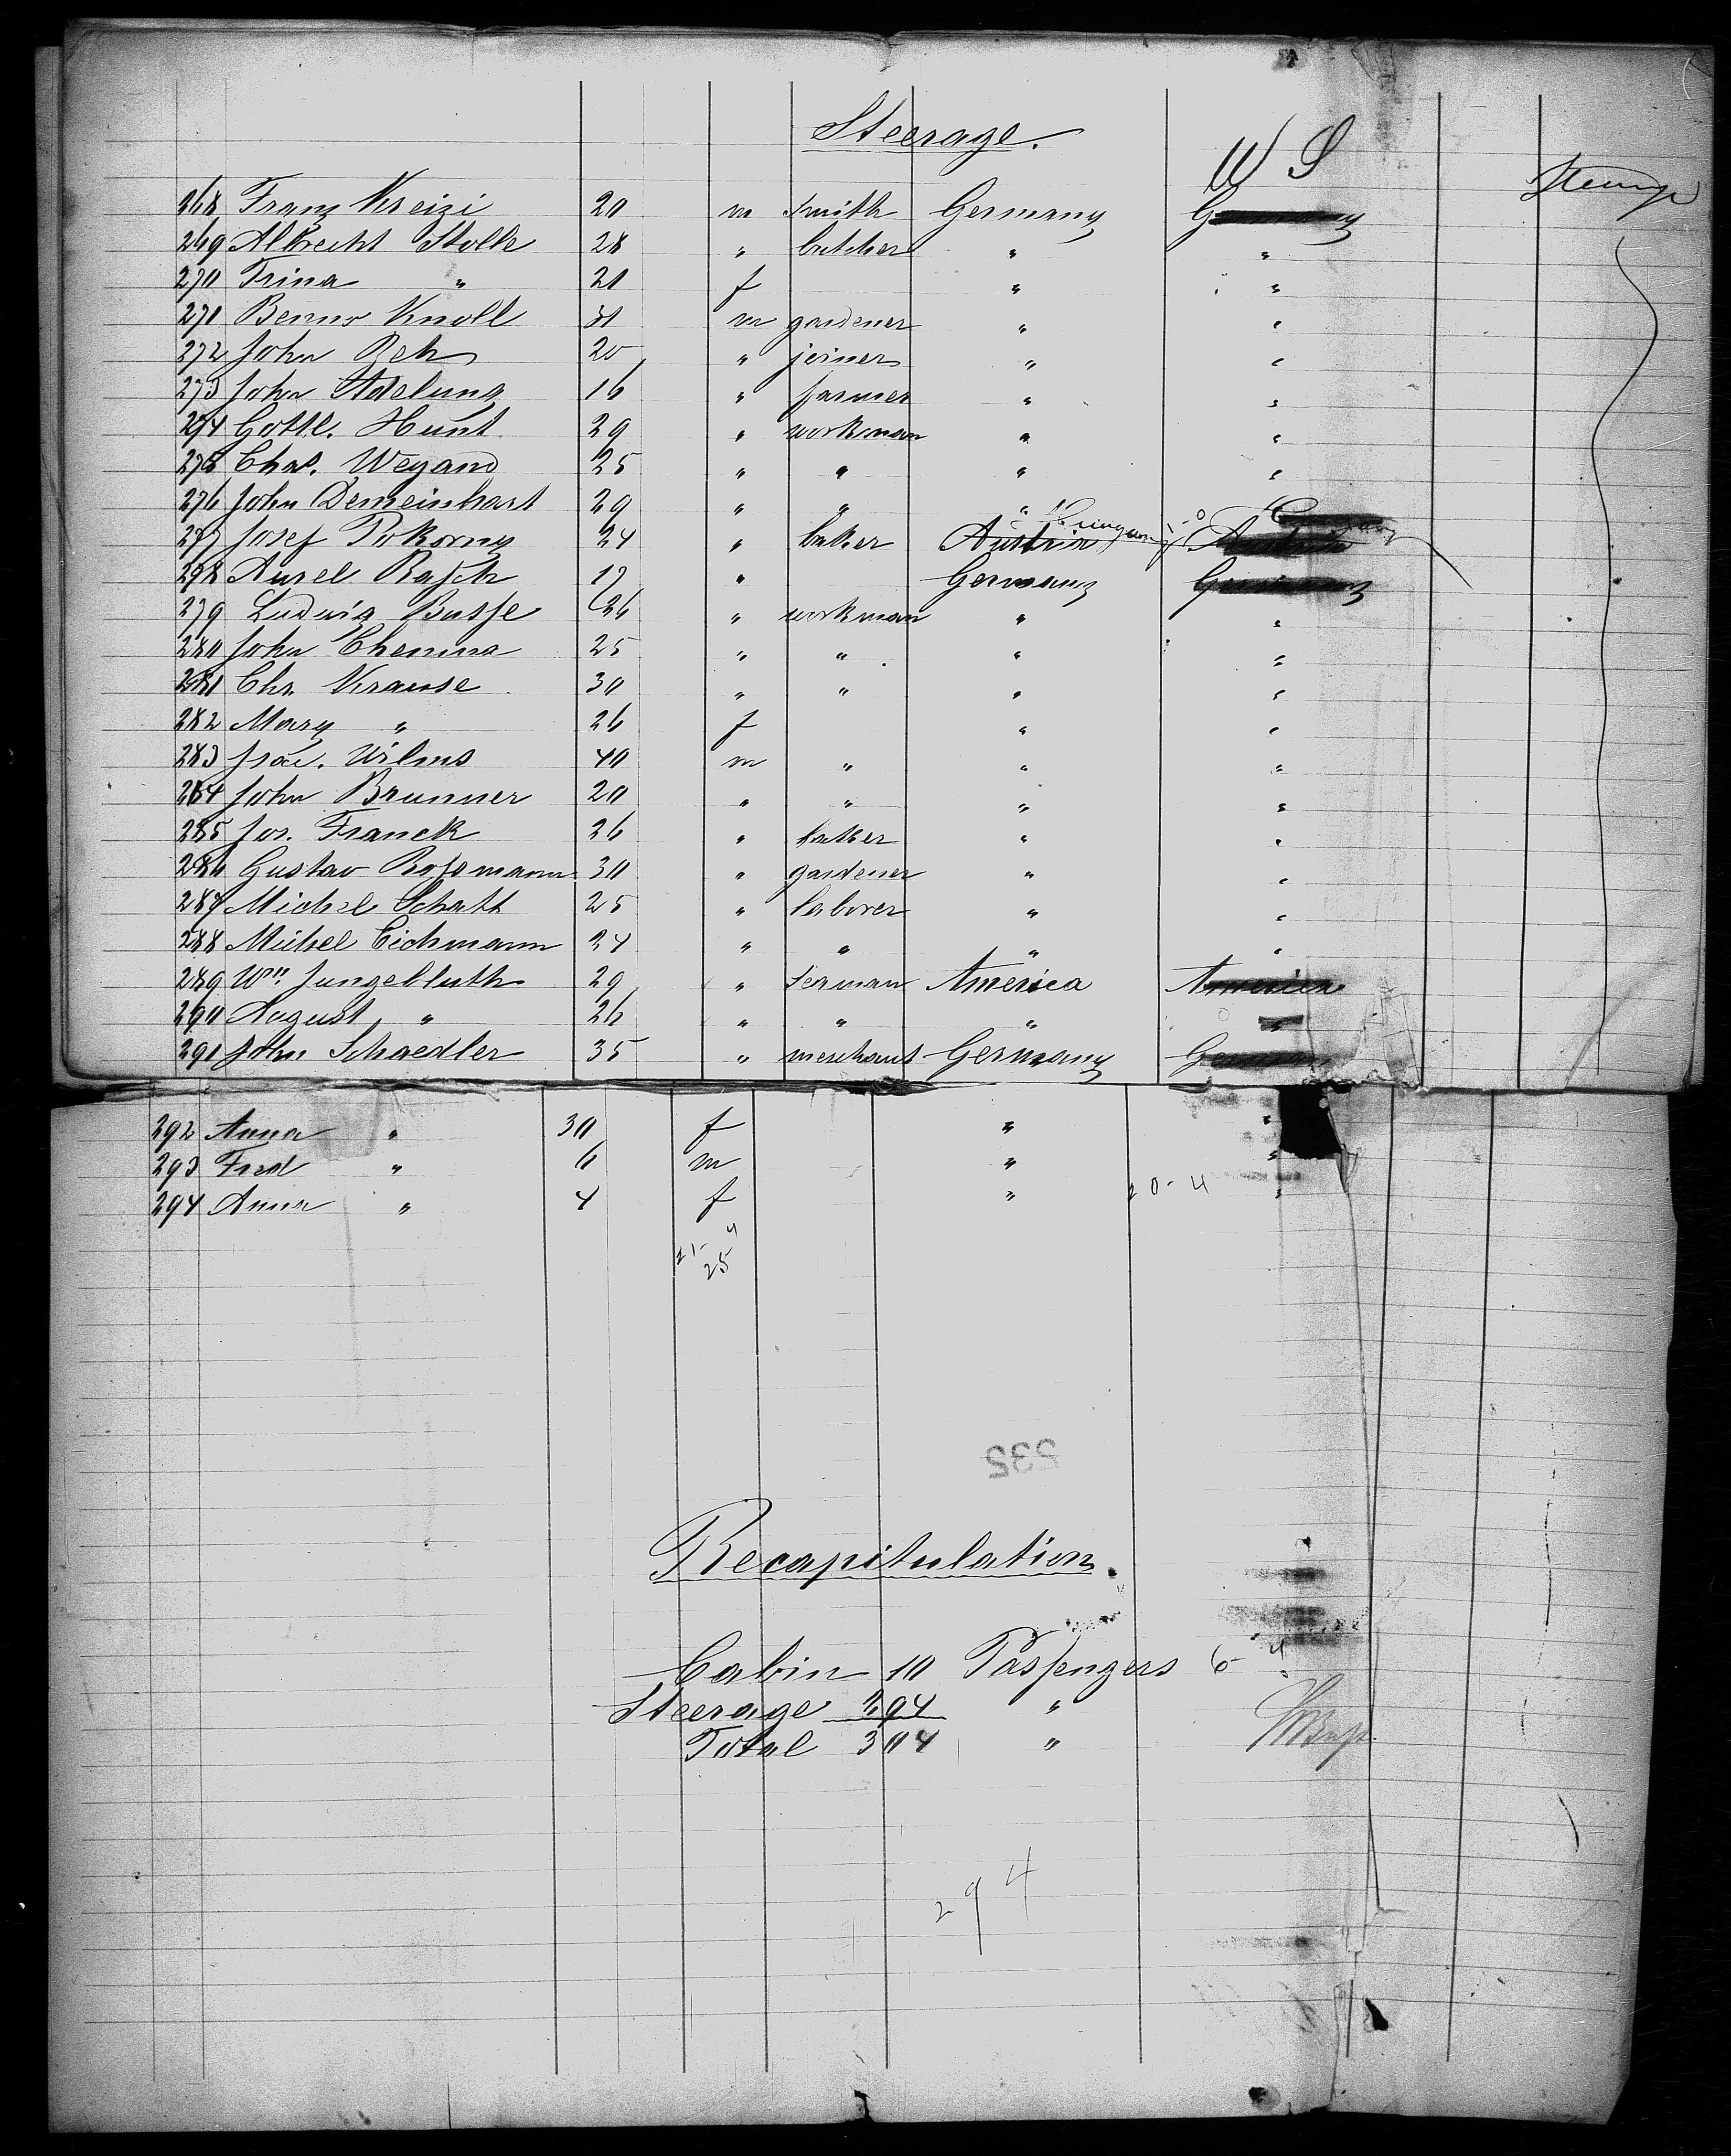 Steerage.
U S
268 Franz Kreizi 20 m Smith Germany Germany
269 Albrecht Stolle 28 " butcher " "
270 Trina " 21 f " "
271 Benno Knoll 31 m gardener " "
272 John Reh 20 " joiner " "
273 John Adelung 16 " farmer " "
274 Gottl. Hunt 29 " workman " "
275 Chas. Weyand 25 " " " "
276 John Demeinhart 29 " " "
277 Josef Pokorny 24 " baker Austria Hungary Austria
278 Aurel Rasch 17 " Germany Germany
279 Ludwig Busse 26 " workman " "
280 John Chemina 25 " " " "
281 Chr. Krause 30 " " " "
282 Mary " 26 f " "
283 Wilms 40 m " " "
284 John Brunner 20 " " " "
285 Jos. Franck 26 " baker " "
286 Gustav Rossmann 30 " gardener " "
287 Michel Schatt 25 " laborer " "
288 Michel Eichmann 24 " " " "
289 Wm. Jungebluth 29 " seaman America America
290 August " 26 " " " "
291 John Schaedler 35 " merchant Germany Germany
292 Anna " 30 f " "
293 Fred " 6 m " "
294 Anna " 4 f " 20-4 "
21-4
25
535
Recapitulation.
Cabin 10 Passengers 6-4
Steerage 294 "
Total 304 "
294